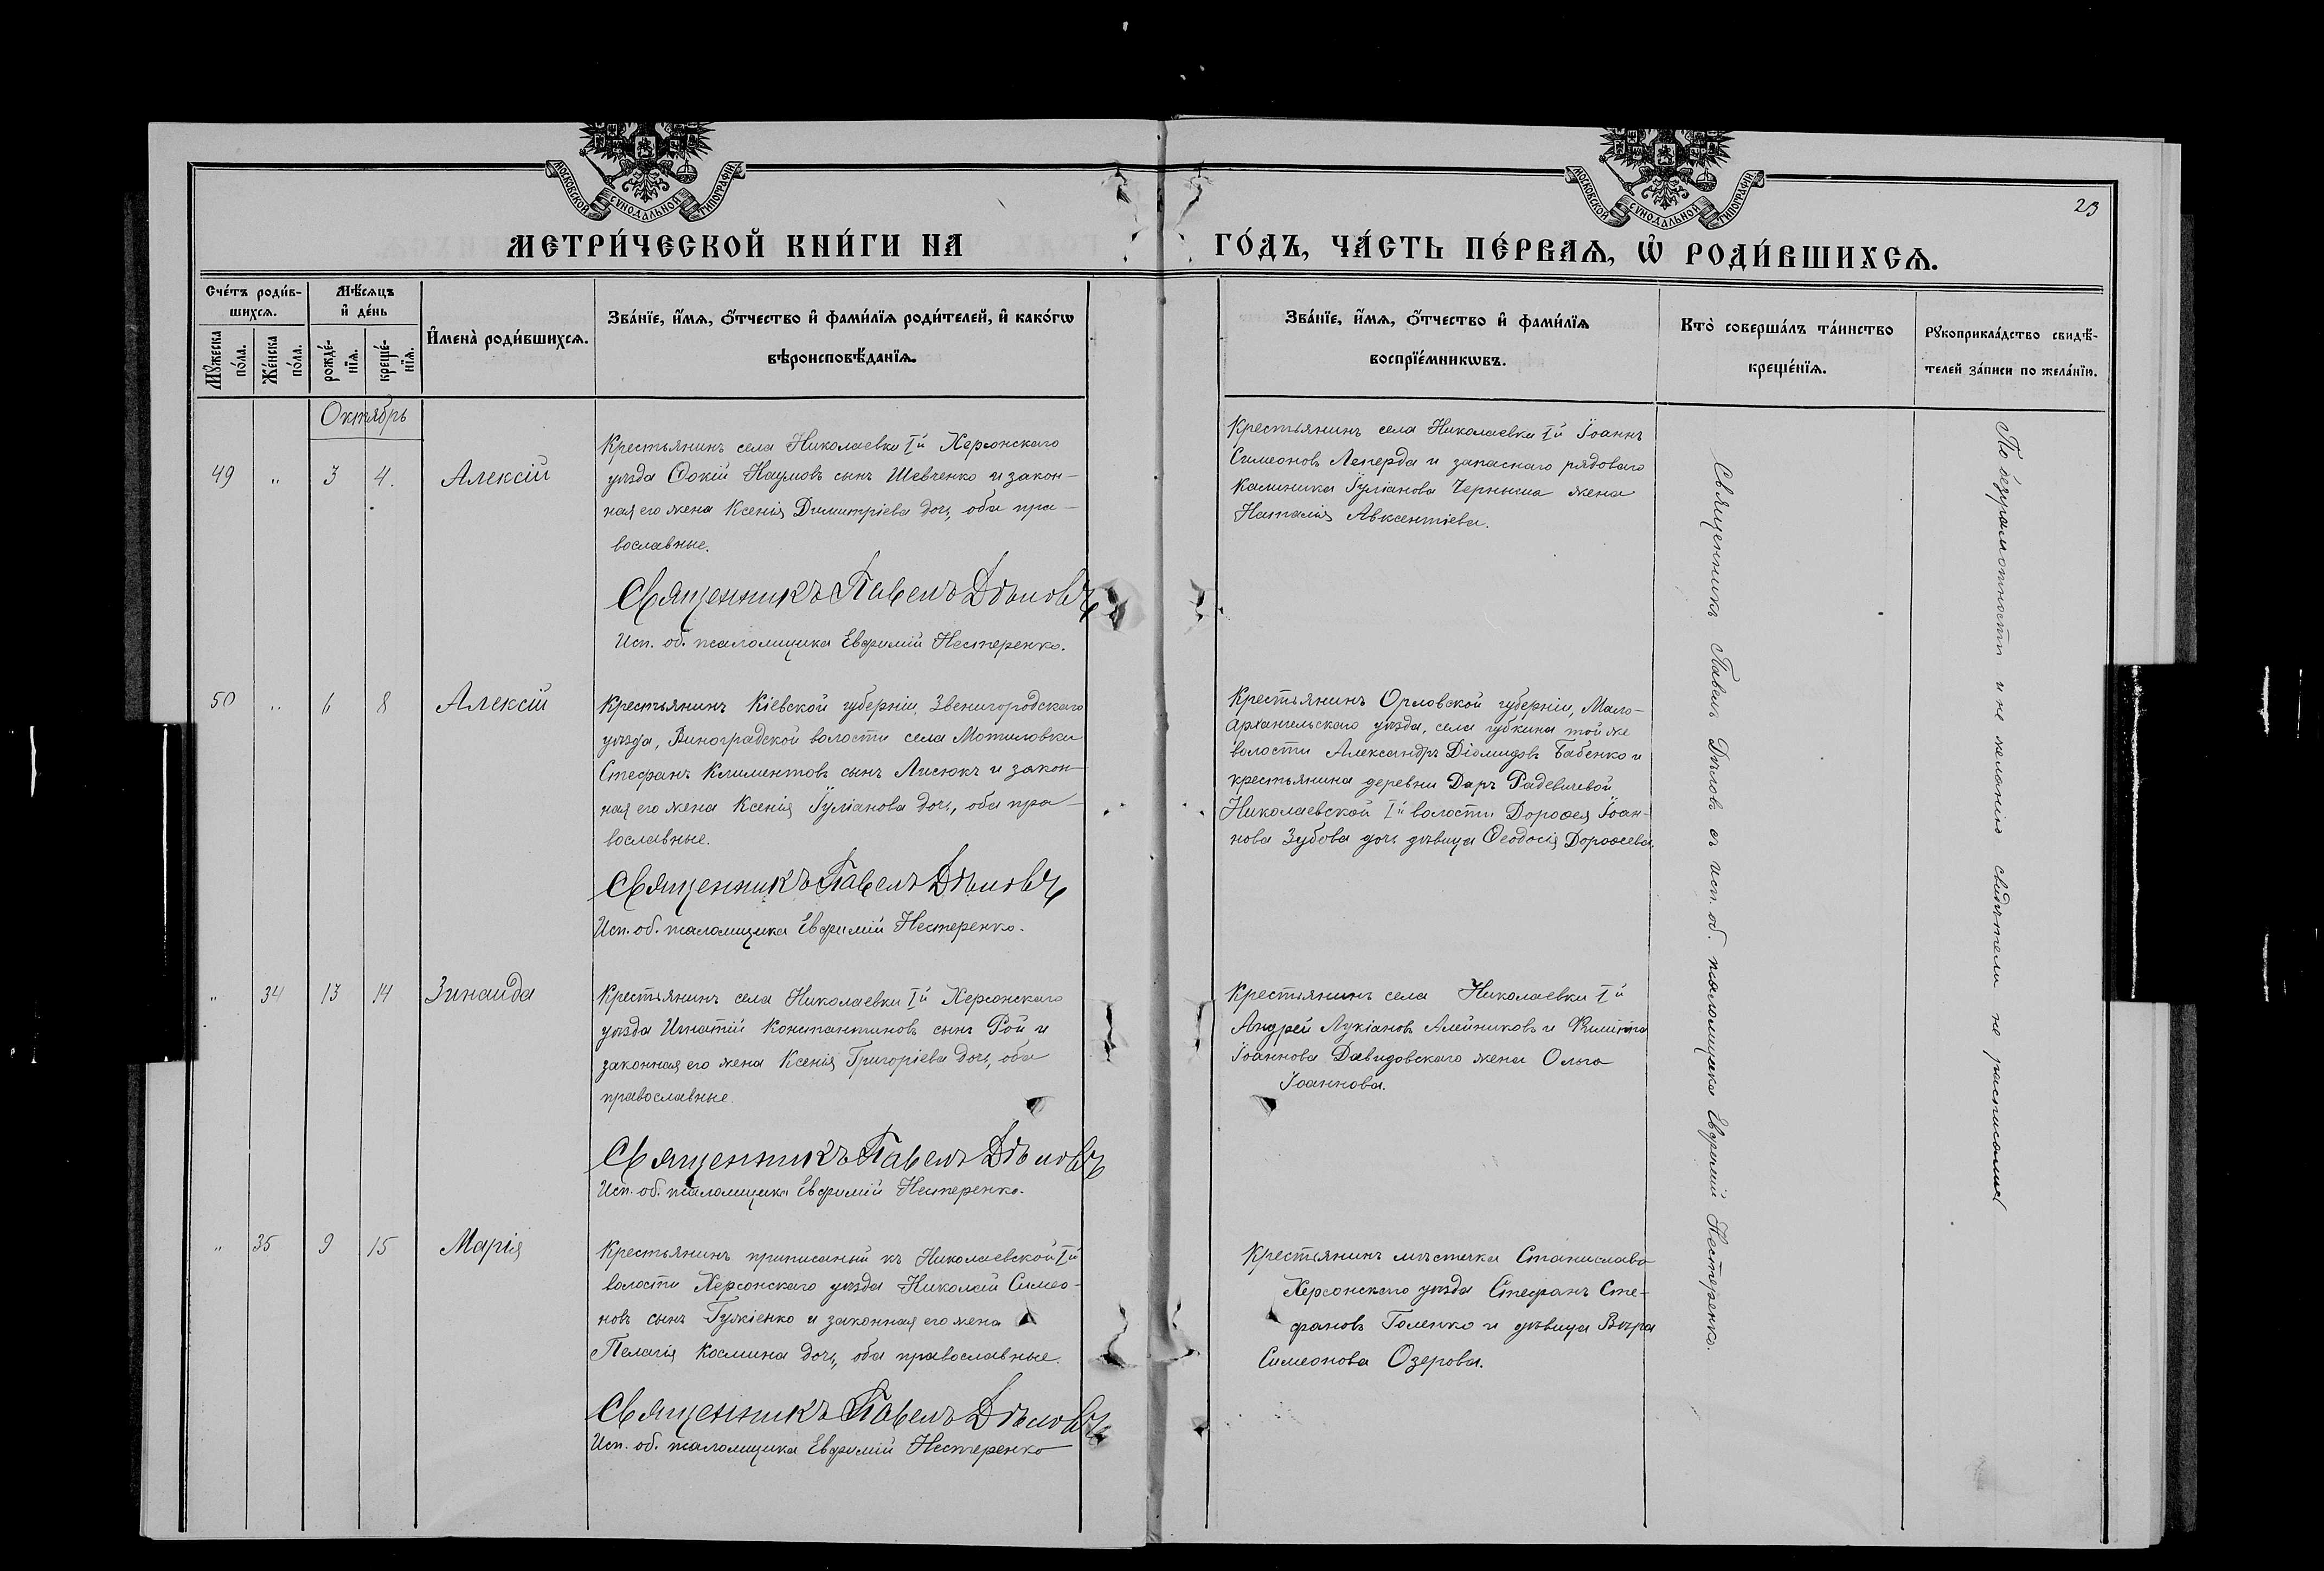 МОСКОВСКОЙ СѴНОДАЛЬНОЙ ТИПОГРАФІИ
МОСКОВСКОЙ СѴНОДАЛЬНОЙ ТИПОГРАФІИ
23
МЕТРИ́ЧЕСКОЙ КНИ́ГИ НА
ГО́ДЪ, ЧА́СТЬ ПЕ́РВАѦ, Ѡ҆ РОДИ́ВШИХСѦ.
Сче́тъ роди́в-
шихсѧ.
Мꙋ́жеска по́ла.
Же́нска по́ла.
Мѣ́сѧцъ
и҆ де́нь
рожде́-
нїѧ.
креще́-
нїѧ.
И҆мена̀ роди́вшихсѧ.
Зва́нїе, и҆́мѧ, ѻ҆́тчество и҆ фами́лїѧ роди́телей, и҆ како́гѡ
вѣроисповѣ́данїѧ.
Зва́нїе, и҆́мѧ, ѻ҆́тчество и҆ фами́лїѧ
воспрїе́мникѡвъ.
Кто̀ соверша́лъ та́инство
креще́нїѧ.
Рꙋкоприкла́дство свидѣ́-
телей за́писи по жела́нїю.
Октябрь
49 " 3 4. Алексій
Крестьянинъ села Николаевки Iй Херсонскаго
уѣзда Ѳокій Наумовъ сынъ Шевченко и закон-
ная его жена Ксенія Димитріева дочь, оба пра-
вославные.
Священникъ Павелъ Дѣловъ
Исп. об. псаломщика Евфимій Нестеренко.
Крестьянинъ села Николаевки Iй Іоаннъ
Симеоновъ Леперда и запаснаго рядоваго
Калиника Іуліанова жена
Наталія Авксентіева.
50 " 6 8 Алексій
Крестьянинъ Кіевской губерніи, Звенигородскаго
уѣзда, Виноградской волости села Мотиловки
Стефанъ Климентовъ сынъ Лисюкъ и закон-
ная его жена Ксенія Іуліанова дочь, оба пра-
вославные.
Священникъ Павелъ Дѣловъ
Исп. об. псаломщика Евфимій Нестеренко.
Крестьянинъ Орловской губерніи, Мало-
архангельскаго уѣзда, села Губкина той же
волости Александръ Діомидовъ Бабенко и
крестьянина деревни Даръ Радевичевой
Николаевской Iй волости Дороѳея Іоан-
нова Зубова дочь дѣвица Ѳеодосія Дороѳеева.
" 34 13 14 Зинаида
Крестьянинъ села Николаевки Iй Херсонскаго
уѣзда Игнатій Константиновъ сынъ Рой и
законная его жена Ксенія Григоріева дочь, оба
православные.
Священникъ Павелъ Дѣловъ
Исп. об. псаломщика Евфимій Нестеренко.
Крестьянинъ села Николаевки Iй
Андрей Лукіановъ Алейниковъ и Филиппа
Іоаннова Давидовскаго жена Ольга
Іоаннова.
" 35 9 15 Марія
Крестьянинъ приписаный къ Николаевской Iй
волости Херсонскаго уѣзда Николай Симео-
новъ сынъ Гужіенко и законная его жена
Пелагія Космина дочь, оба православные.
Священникъ Павелъ Дѣловъ
Исп. об. псаломщика Евфимій Нестеренко
Крестьянинъ мѣстечка Станислава
Херсонскаго уѣзда Стефанъ Сте-
фановъ Голенко и дѣвица Вѣра
Симеонова Озерова.
Священникъ Павелъ Дѣловъ съ исп. об. псаломщика Евфимій Нестеренко.
По безграмотности и не желанію свидѣтели не расписались